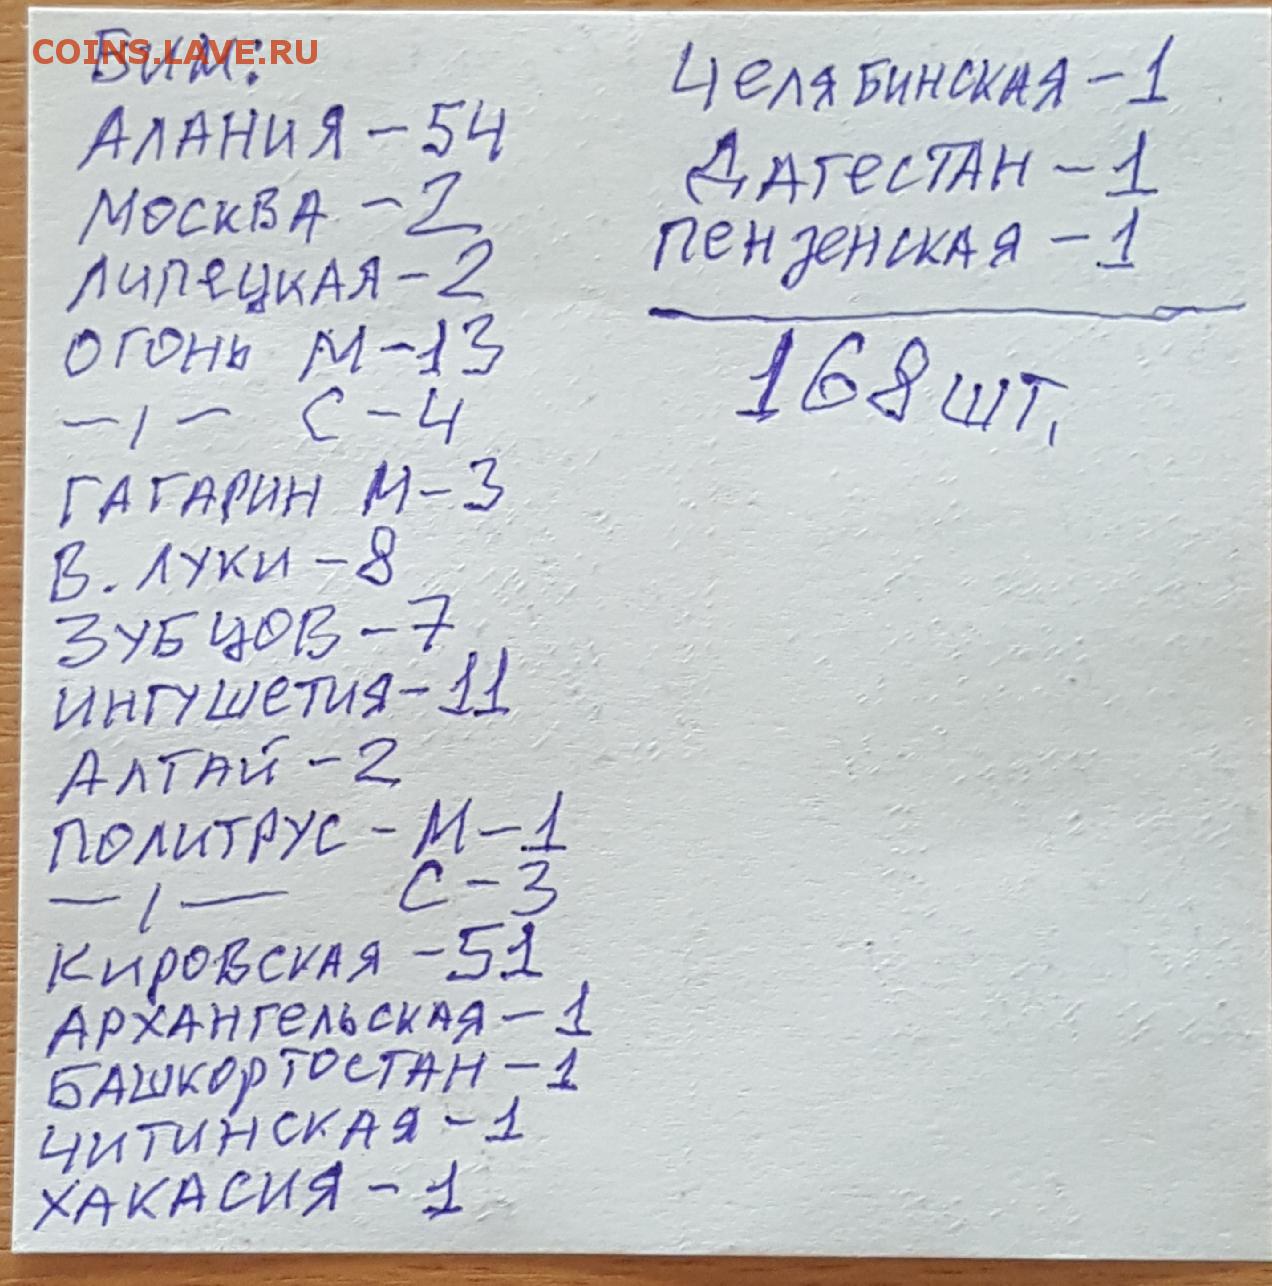 COINS.LAVE.RU
БИМ:
АЛАНИЯ - 54
МОСКВА - 2
ЛИПЕЦКАЯ - 2
ОГОНЬ М - 13
— ı — С - 4
ГАГАРИН М - 3
В. ЛУКИ - 8
ЗУБЦОВ - 7
ИНГУШЕТИЯ - 11
АЛТАЙ - 2
ПОЛИТРУС - М - 1
— ı — С - 3
КИРОВСКАЯ - 51
АРХАНГЕЛЬСКАЯ - 1
БАШКОРТОСТАН - 1
ЧИТИНСКАЯ - 1
ХАКАСИЯ - 1
ЧЕЛЯБИНСКАЯ - 1
ДАГЕСТАН - 1
ПЕНЗЕНСКАЯ - 1
168 ШТ.